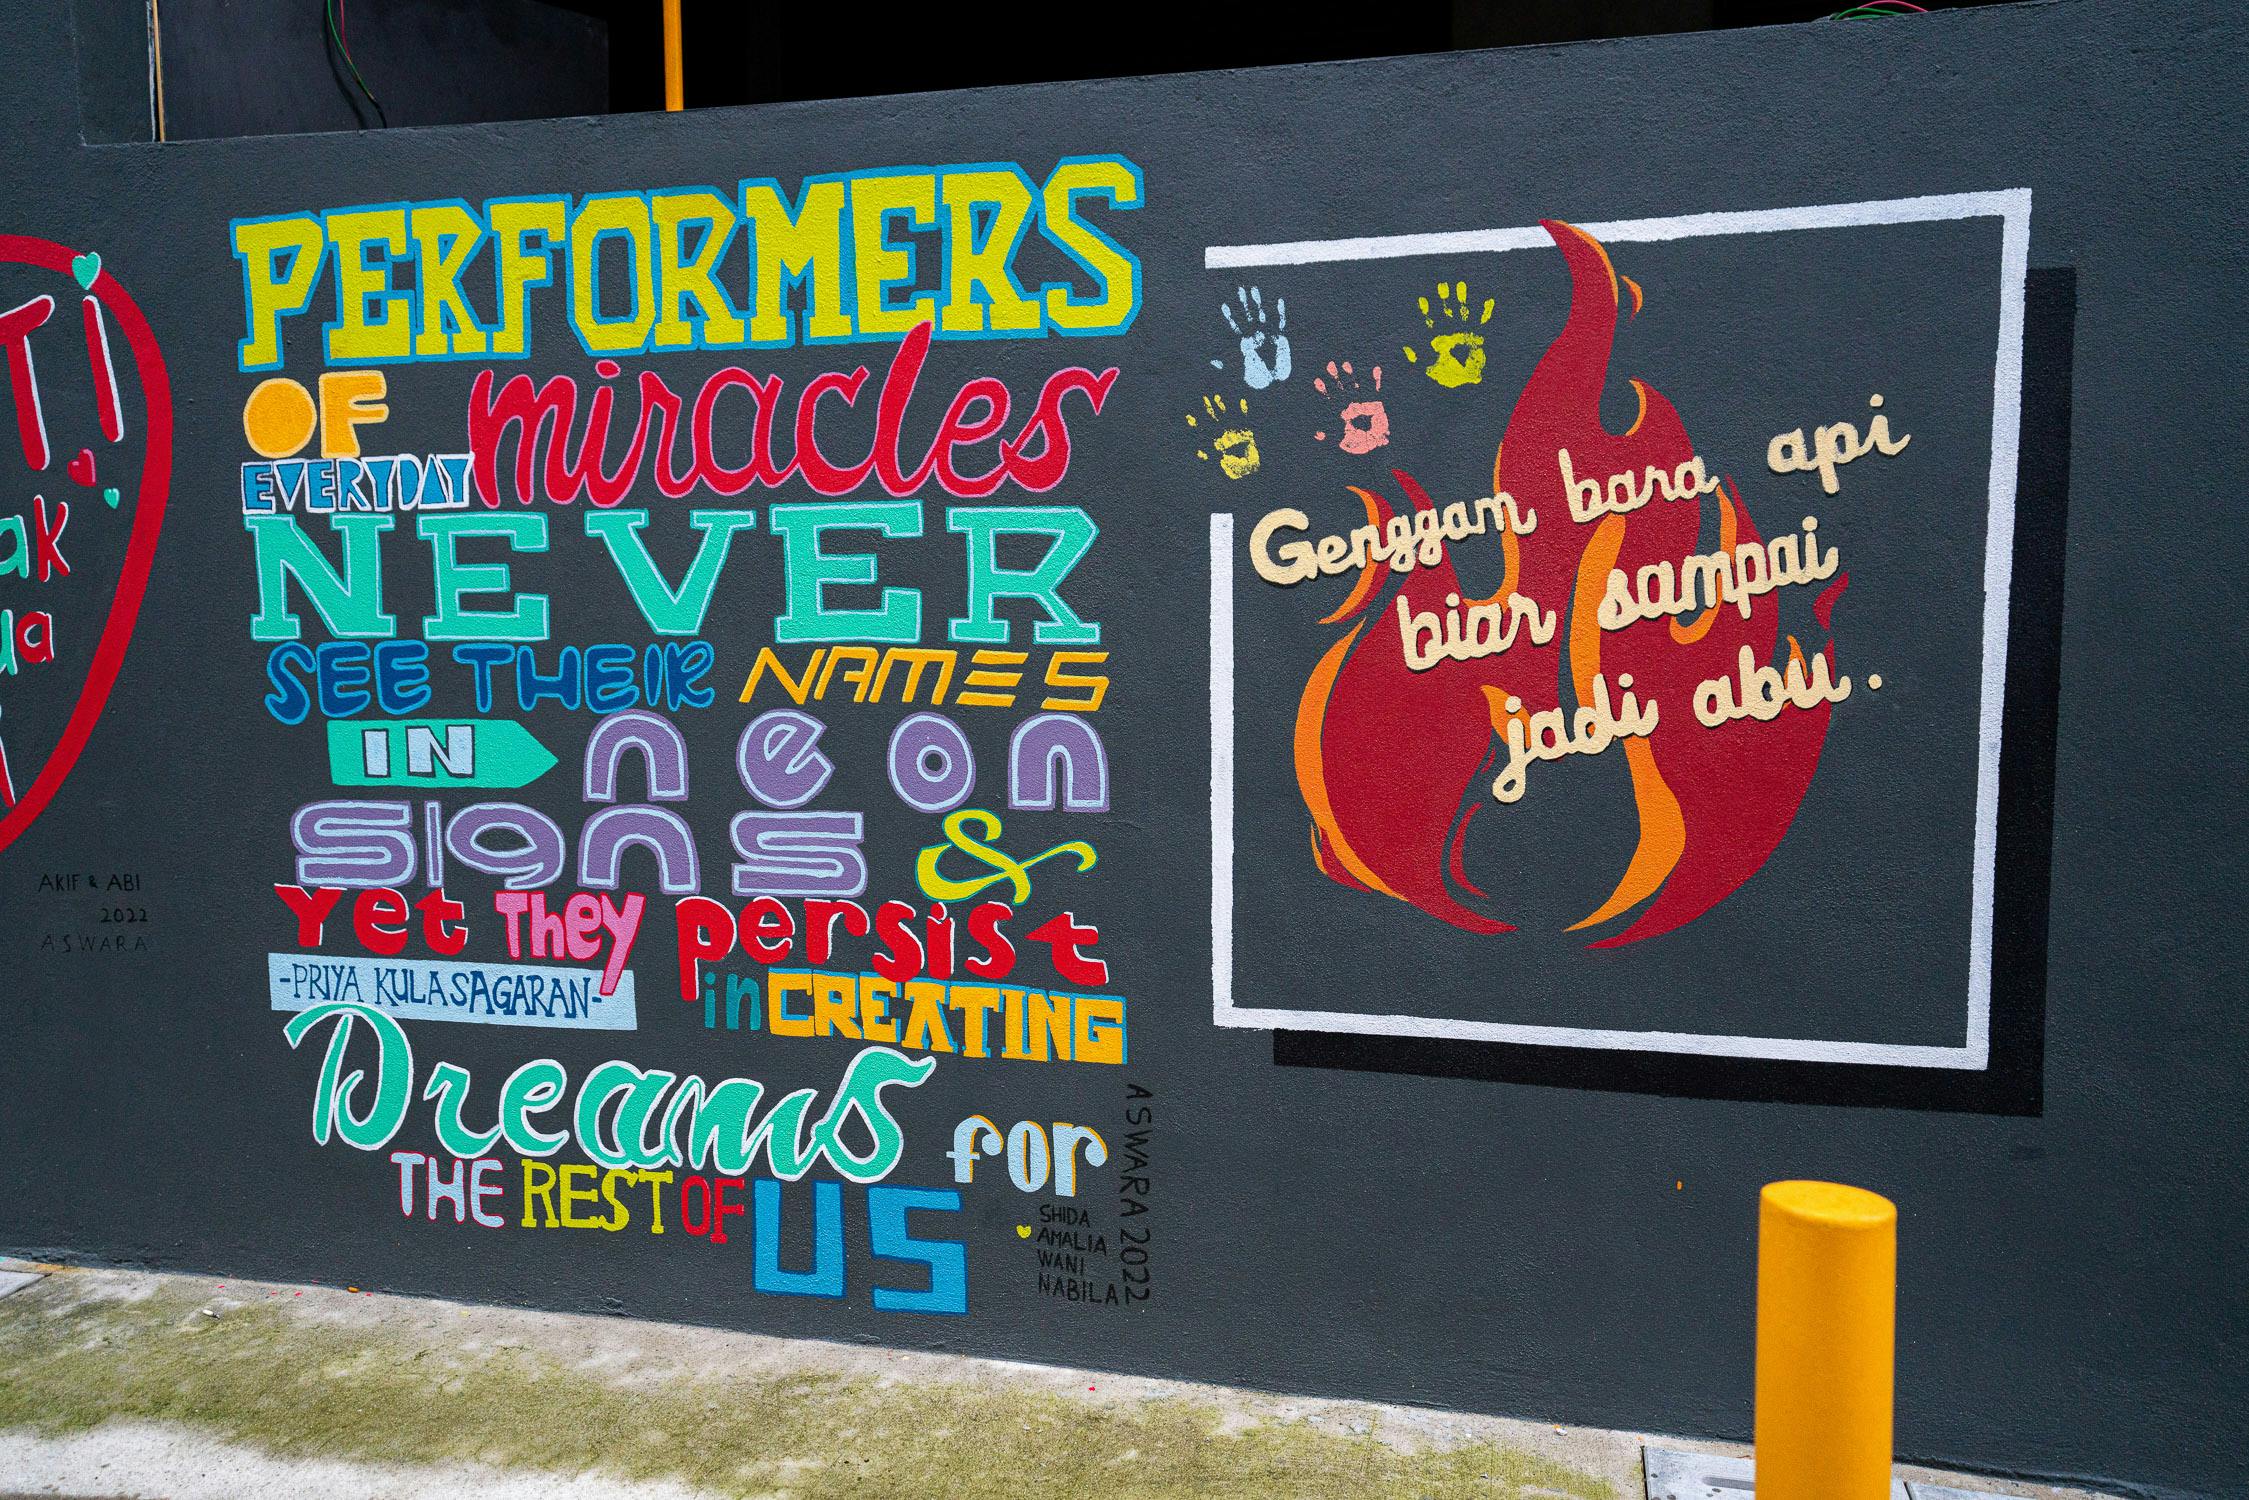 TI
ak
ua
AKIF & ABI
2022
ASWARA
PERFORMERS
OF miracles
EVERYDAY
NEVER
SEE THEIR NAMES
IN neon
signs &
yet They persist
-PRIYA KULASAGARAN-
in CREATING
Dreams for
THE REST OF US
SHIDA
AMALIA
WANI
NABILA
ASWARA 2022
Genggam bara api
biar sampai
jadi abu.